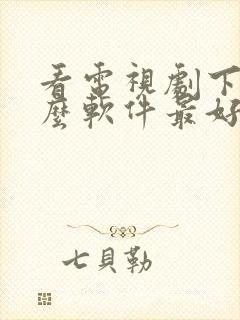 看電視劇下
麼軟件最好
七貝勒